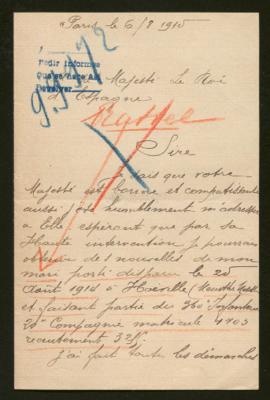 Paris le 6/8 1915
Pedir informes
que se hace
Devolver
99172
Majesté Le Roi
d'Espagne
Sire
Je sais que votre
Majesté est bonne et compatissante
aussi j'ose humblement m'adresser
à Elle espérant que par sa
Haute intervention je pourrais
obtenir des nouvelles de mon
mari porté disparu le 25
Août 1914 à Hoéville (Meurthe
et faisant partie des 360e Infanterie
20e Compagnie matricule 4703
recrutement
j'ai fait toutes les démarches